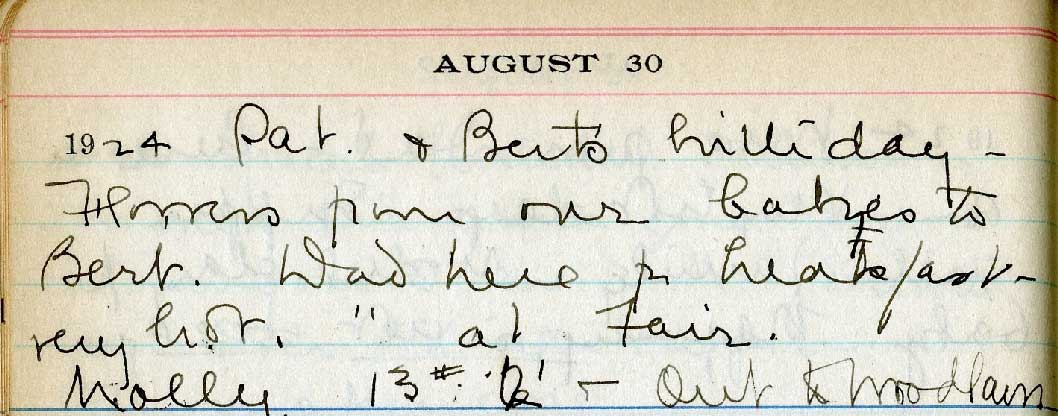 AUGUST 30
1924 Pat. & Bert's birthday -
Flowers from our babies to
Bert. Dad here for breakfast -
very hot. " at Fair.
Molly 13# - Out to Woodlawn